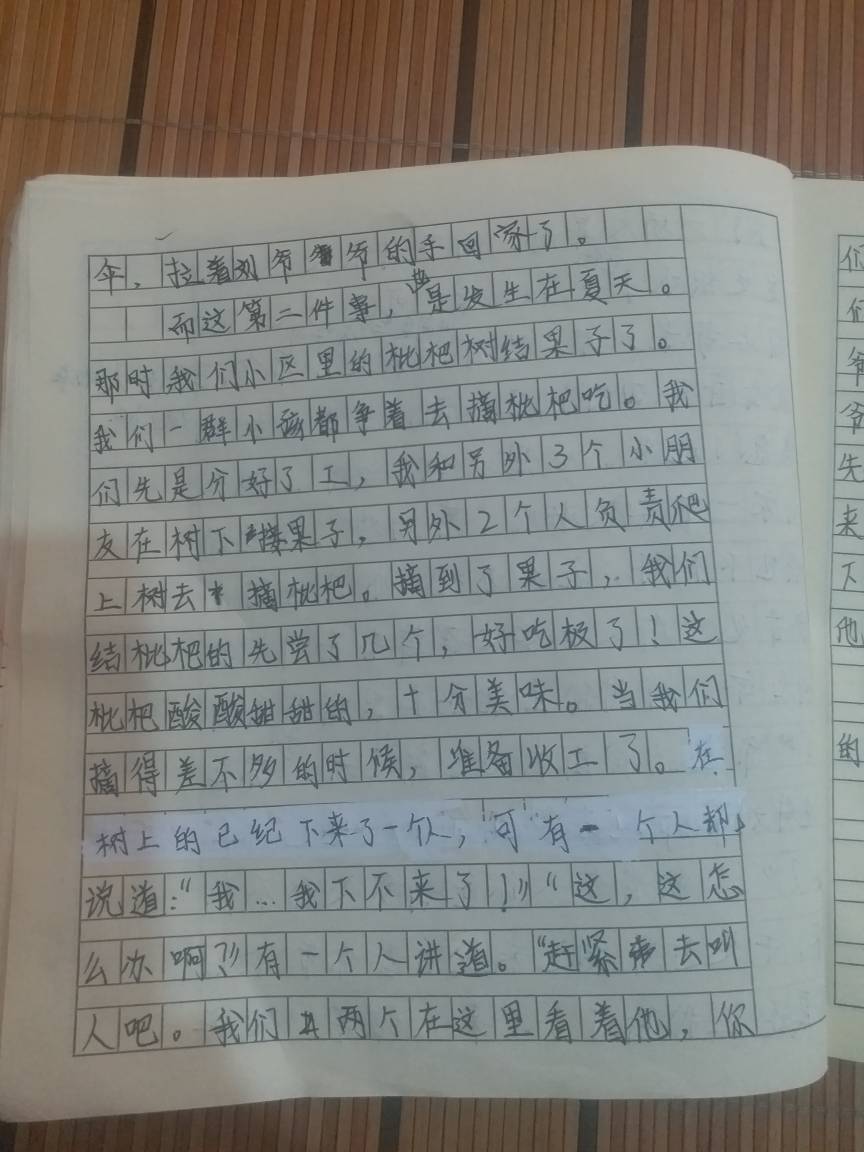 伞，拉着刘爷爷的手回家了。
而这第二件事，也是发生在夏天。
那时我们小区里的枇杷树结果子了。
我们一群小孩都争着去摘枇杷吃。我
们先是分好了工，我和另外3个小朋
友在树下接果子，另外2个人负责爬
上树去摘枇杷。摘到了果子，我们
结枇杷的先尝了几个，好吃极了！这
枇杷酸酸甜甜的，十分美味。当我们
摘得差不多的时候，准备收工了。在
树上的已纪下来了一个人，可有一个人却
说道：“我…我下不来了！”“这，这怎
么办啊？”有一个人讲道。“赶紧去叫
人吧。我们两个在这里看着他，你
们
们
爷
爷
先
来
下
他
的